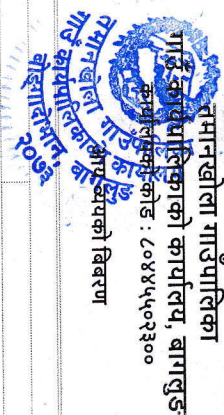 तमानखोला गाउँपालिका
गाउँ कार्यपालिकाको कार्यालय, बागलुङ
कार्यालयको कोड : ८०४४५०२३००
तमानखोला गाउँपालिका
गाउँ कार्यपालिकाको कार्यालय
बागलुङ
२०७३